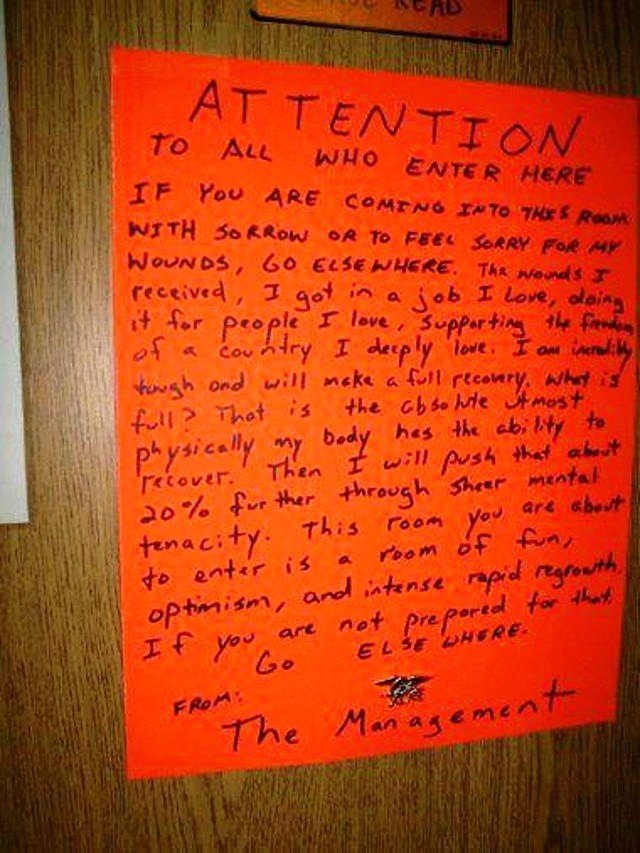 READ
ATTENTION
TO ALL WHO ENTER HERE
IF YOU ARE COMING INTO THIS ROOM
WITH SORROW OR TO FEEL SORRY FOR MY
WOUNDS, GO ELSEWHERE. The wounds I
received, I got in a job I love, doing
it for people I love, supporting the freedom
of a country I deeply love. I am incredibly
tough and will make a full recovery. What is
full? That is the absolute utmost
physically my body has the ability to
recover. Then I will push that about
20% further through sheer mental
tenacity. This room you are about
to enter is a room of fun,
optimism, and intense rapid regrowth.
If you are not prepared for that,
Go ELSEWHERE.
FROM:
The Management